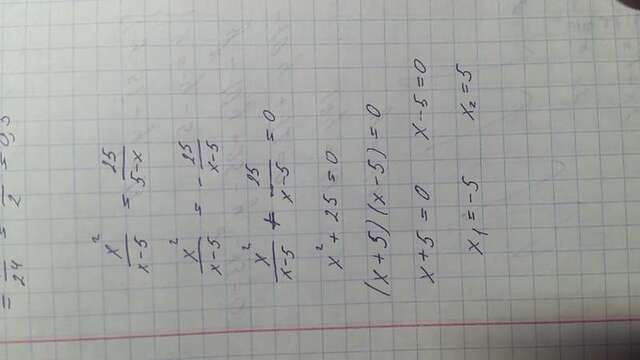 = /24 = /2 = 0,5
x²/(x-5) = 25/(5-x)
x²/(x-5) = -25/(x-5)
x²/(x-5) + 25/(x-5) = 0
x² + 25 = 0
(x+5)(x-5) = 0
x+5 = 0 x-5 = 0
x₁ = -5 x₂ = 5